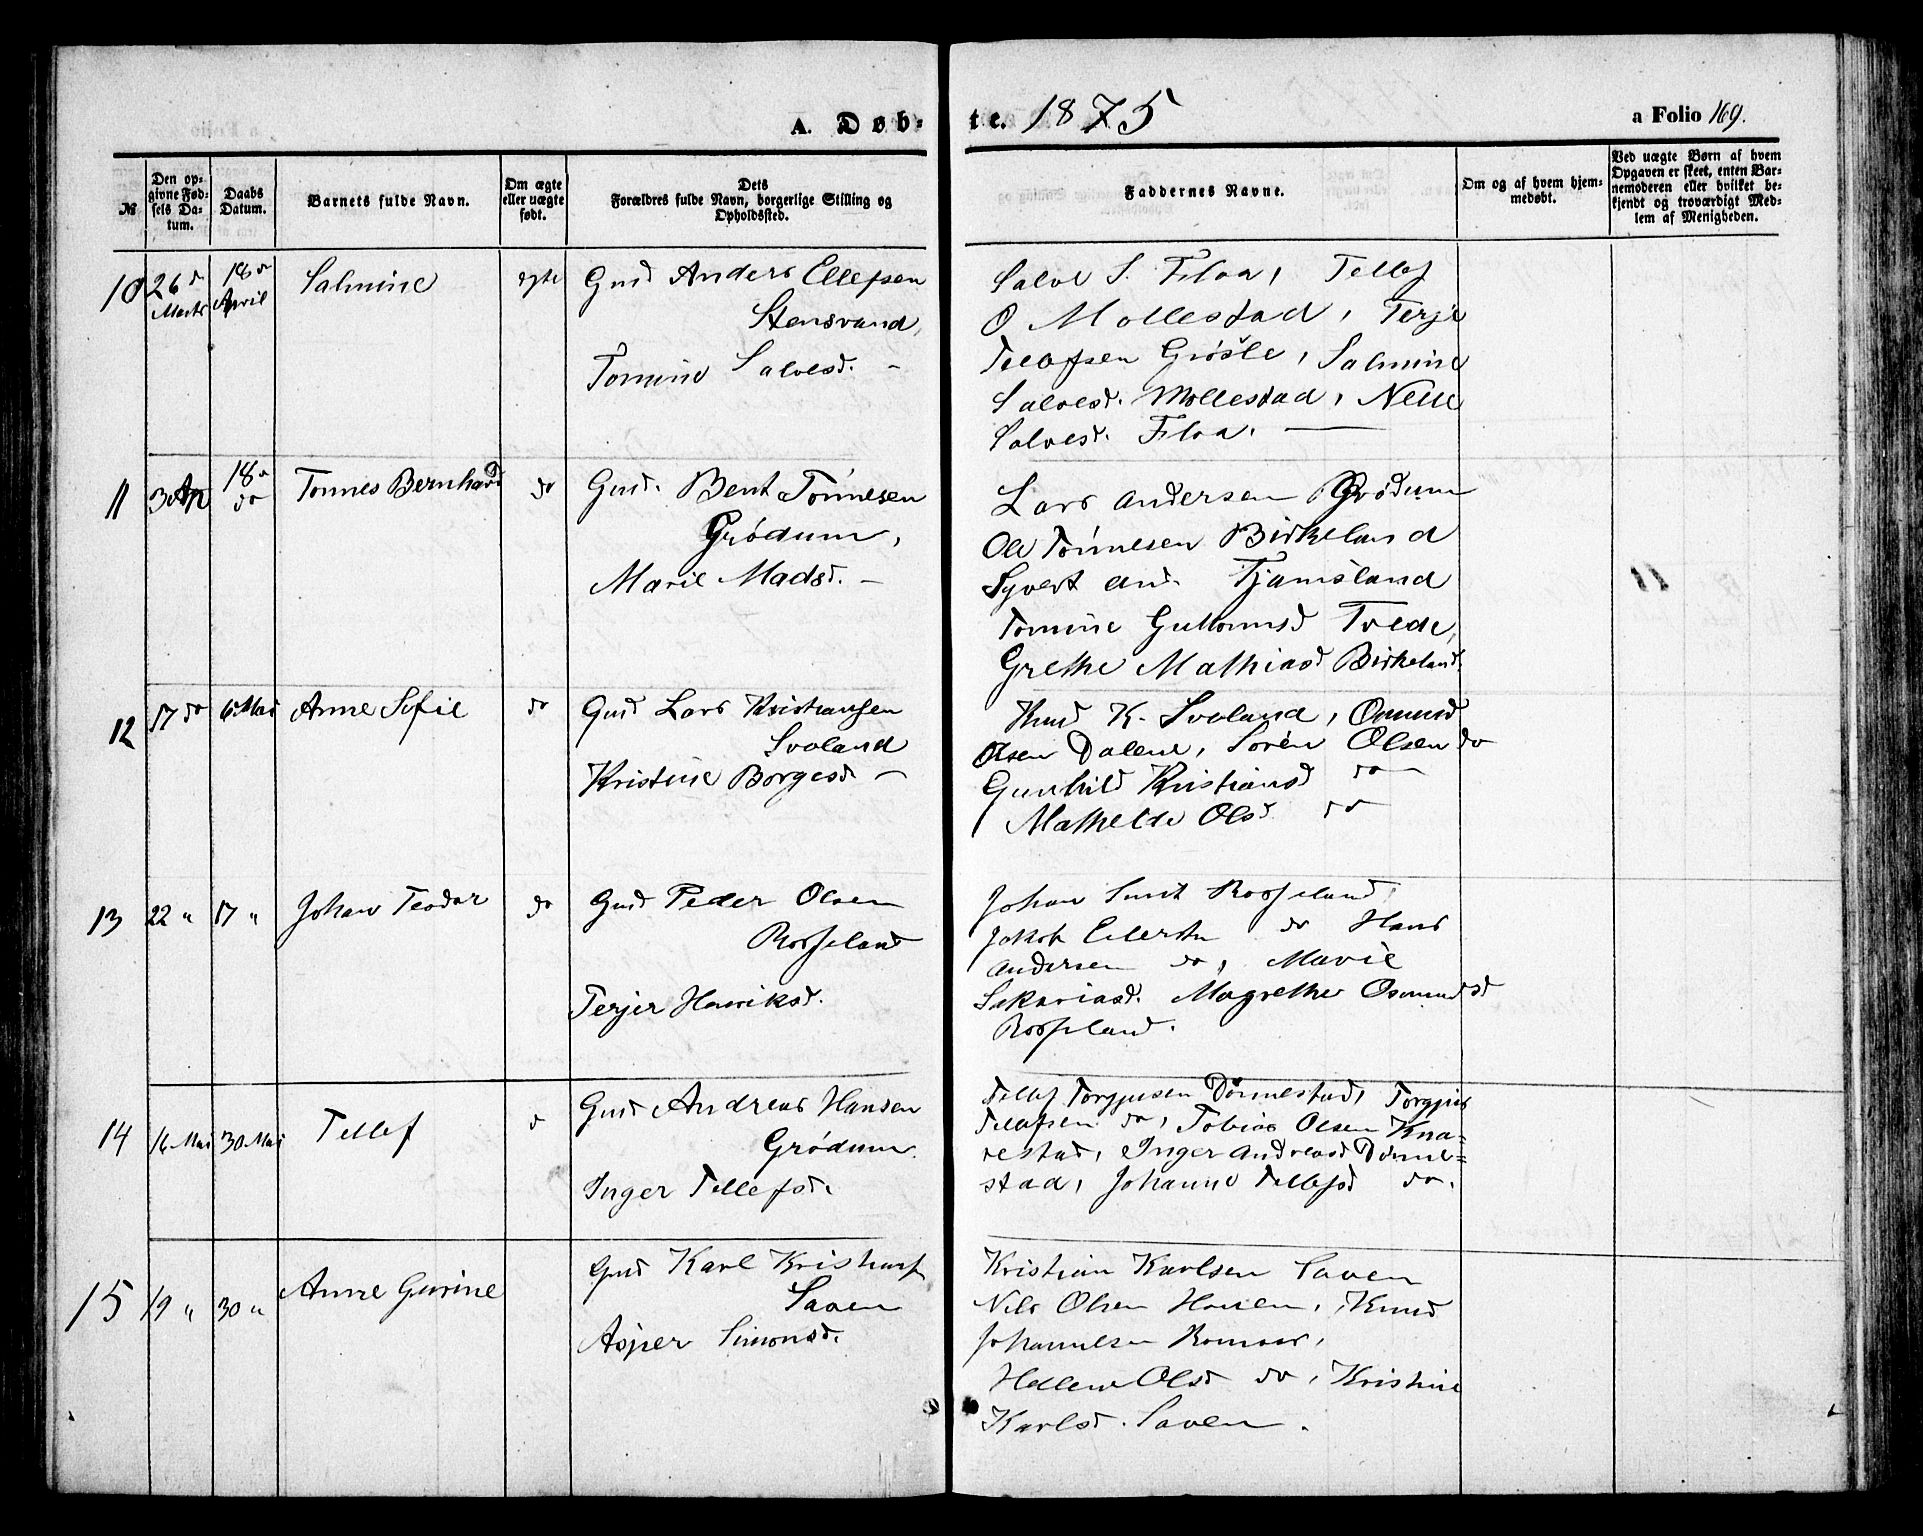 A. Døb-
te. 1875
a Folio 169.
№
Den op-
givne Fød-
sels Da-
tum.
Daabs
Datum.
Barnets fulde Navn.
Om ægte
eller uægte
født.
Dets
Forældres fulde Navn, borgerlige Stilling og
Opholdssted.
Faddernes Navne.
Om og af hvem hjem-
medøbt.
Ved uægte Børn af hvem
Opgaven er skeet, enten Bar-
nemoderen eller hvilket be-
kjendt og troværdigt Med-
lem af Menigheden.
10 26 d Marts 18 d April Salmine egte
Gmd Anders Ellefsen
Stensvand,
Tomine Salvesd. -
Salve S. Floa, Tellef
O Mollestad, Terje
Tellefsen Grøsle, Salmine
Salvesd. Mollestad, Nelle
Salvesd. Floa.
11 30 18 do Tønnes Bernhard do
Gmd. Bent Tønnesen
Grødum,
Marie Madsd. -
Lars Andersen Grødum
Ole Tønnesen Birkeland
Syvert And. Tjamsland
Tomine Guttormsd Tvede,
Grethe Mathiasd Birkeland.
12 17 do 6 Mai Anne Sofie do
Gmd Lars Kristiansen
Svaland
Kristine Borgesd -
Knud K. Svaland, Osmund
Olsen Dalene, Søren Olsen do
Gunhild Kristiansd do
Mathelde Olsd do
13 22 " 17 " Johan Teodor do
Gmd Peder Olsen
Rosseland
Terjer Henriksd.
Johan Rosseland,
Jakob do Hans
Andersen do, Marie
Sakariasd. Magrethe Osmundsd
Rosseland.
14 16 Mai 30 Mai Tellef d
Gmd Andreas Hansen
Grødum.
Inger Tellefsd.
Tellef Torgjusen Dønnestad, Torgjus
Tellefsen do, Tobias Olsen Kna-
restad, Inger Andreasd Dønne=
stad, Johanne Tellefsd do.
15 19 " 30 " Anne Gurine
Gmd Karl Kristians
Saven
Asper Simonsd.
Kristian Karlsen Saven
Nils Olsen Knud
Johannesen
Hellene Olsd do, Kristine
Karlsd. Saven.